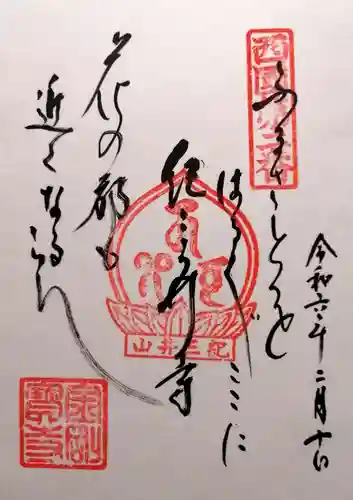 令和六年二月十日
西国第二番
ふるさとを
はる〲ここに
紀三井寺
花の都も
近くなるらん
紀三井山
金剛寶寺